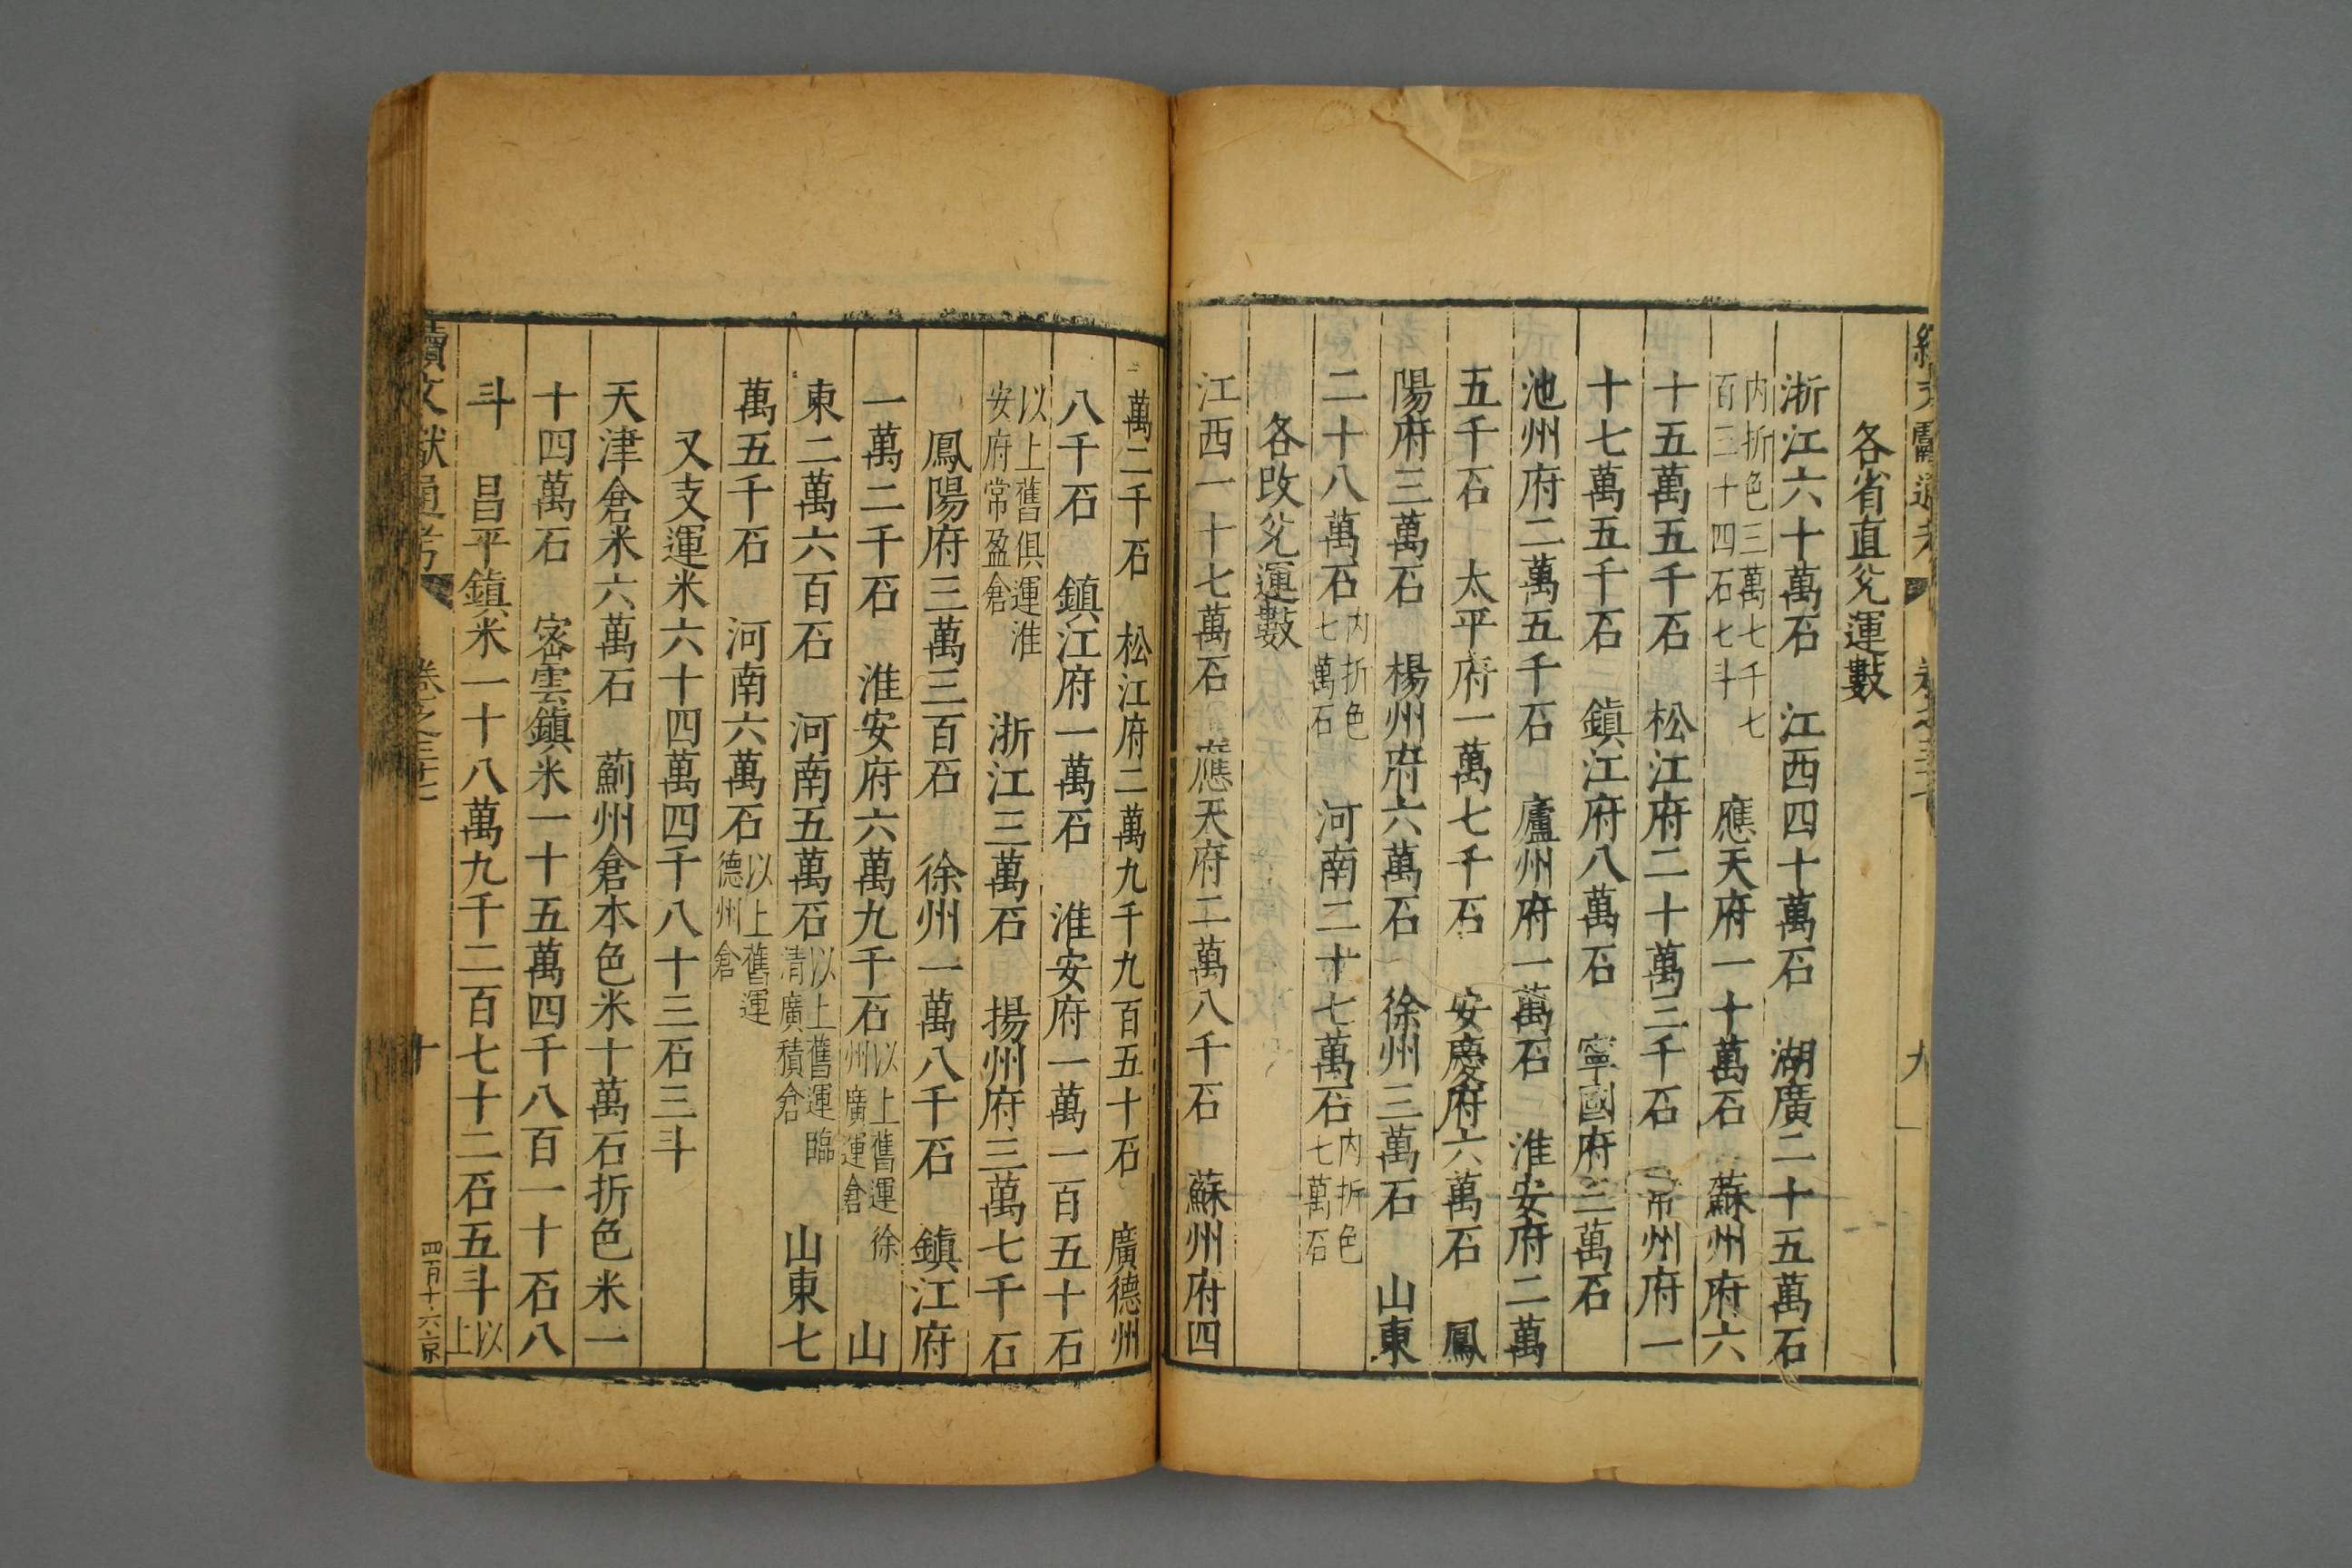 各省直兊運數
浙江六十萬石　江西四十萬石　湖廣二十五萬石
内折色三萬七千七
百三十四石七斗
應天府一十萬石　蘇州府六
十五萬五千石　松江府二十萬三千石　常州府一
十七萬五千石　鎮江府八萬石　寧國府三萬石
池州府二萬五千石　廬州府一萬石　淮安府二萬
五千石　太平府一萬七千石　安慶府六萬石　鳳
陽府三萬石　楊州府六萬石　徐州三萬石　山東
二十八萬石
内折色
七萬石
河南二十七萬石
内折色
七萬石
各改兊運數
江西一十七萬石　應天府二萬八千石　蘇州府四
萬二千石　松江府二萬九千九百五十石　廣德州
八千石　鎮江府一萬石　淮安府一萬一百五十石
以上舊俱運淮
安府常盈倉
浙江三萬石　揚州府三萬七千石
鳳陽府三萬三百石　徐州一萬八千石　鎮江府
一萬二千石　淮安府六萬九千石
以上舊運徐
州廣運倉
山
東二萬六百石　河南五萬石
以上舊運臨
清廣積倉
山東七
萬五千石　河南六萬石
以上舊運
德州倉
又支運米六十四萬四千八十三石三斗
天津倉米六萬石　薊州倉本色米十萬石折色米一
十四萬石　密雲鎮米一十五萬四千八百一十石八
斗　昌平鎮米一十八萬九千二百七十二石五斗
以
上
續文獻通考　卷之三十七　十